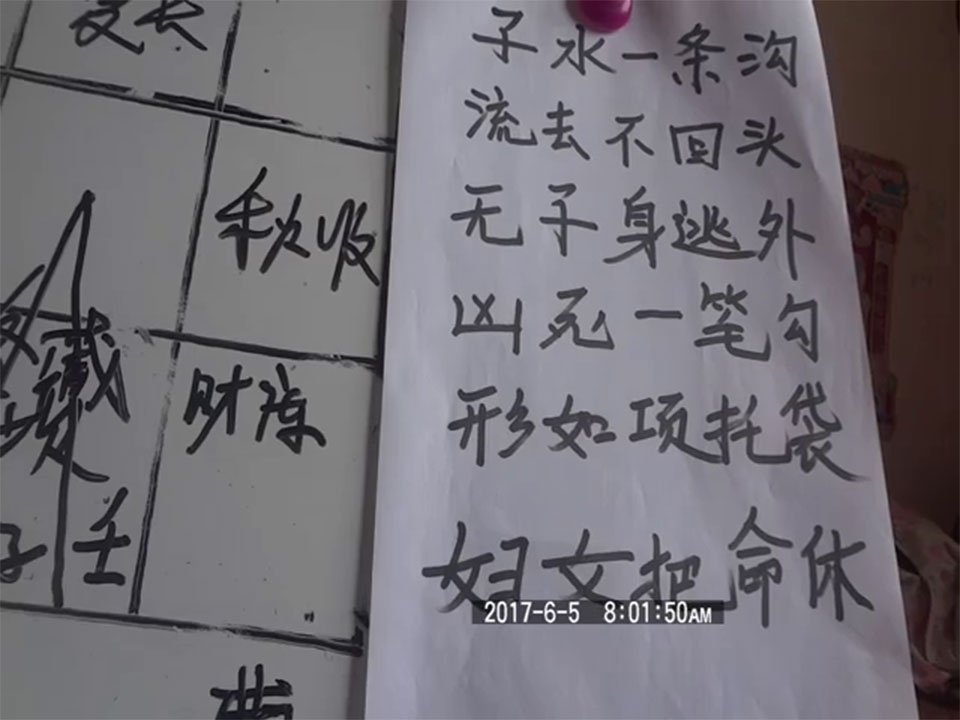 子水一条沟
流去不回头
无子身逃外
凶死一笔勾
形如项托袋
妇女把命休
2017-6-5 8:01:50AM
秋收
壬